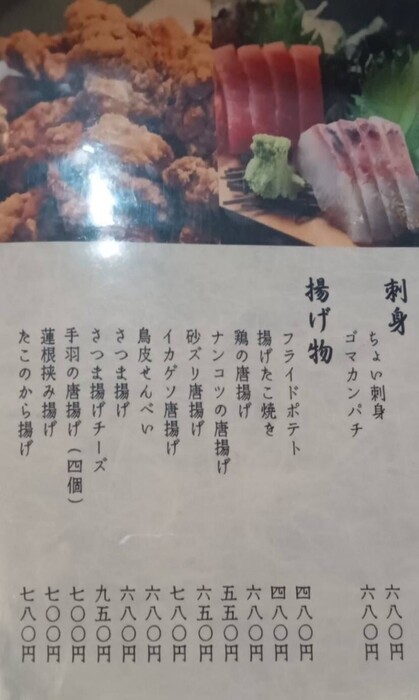 刺身
ちょい刺身 六八〇円
ゴマカンパチ 六八〇円
揚げ物
フライドポテト 四八〇円
揚げたこ焼き 四八〇円
鶏の唐揚げ 六八〇円
ナンコツの唐揚げ 五五〇円
砂ズリ唐揚げ 六五〇円
イカゲソ唐揚げ 七八〇円
鳥皮せんべい 六八〇円
さつま揚げ 六八〇円
さつま揚げチーズ 九五〇円
手羽の唐揚げ(四個) 七〇〇円
蓮根挟み揚げ 七〇〇円
たこのから揚げ 七八〇円